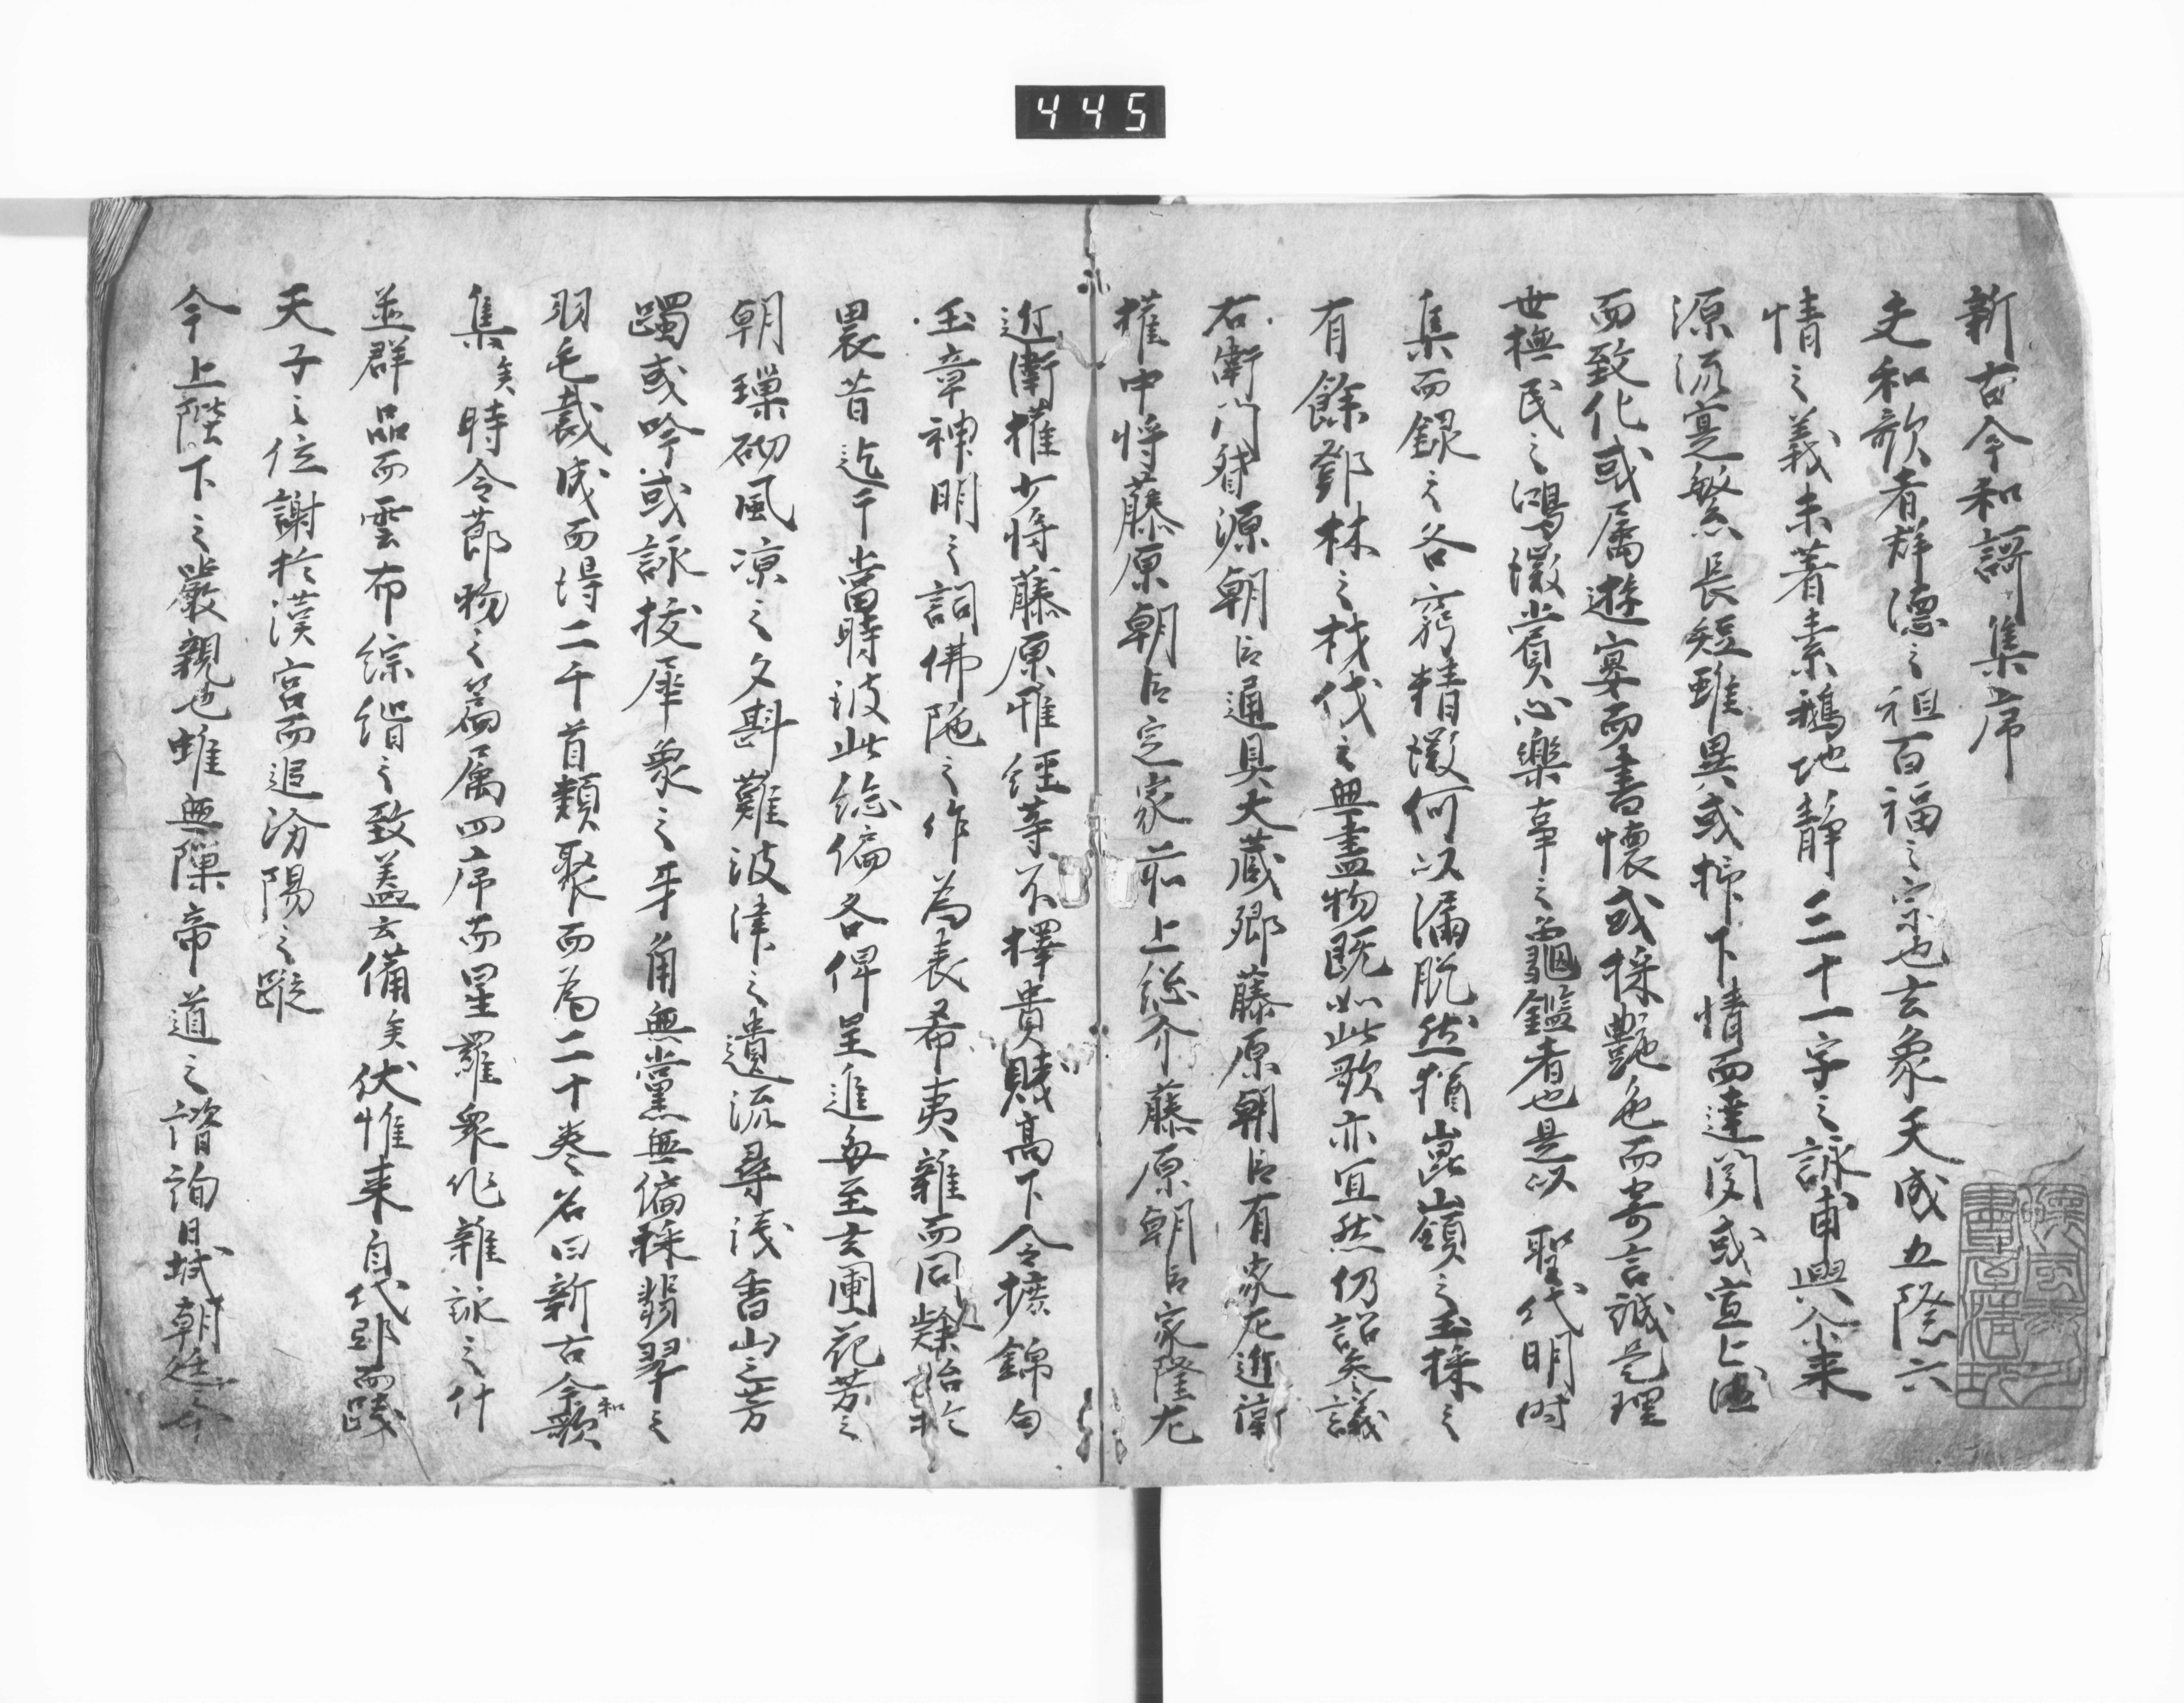 445
新古今和謌集序
夫和歌者群德之祖百福之宗也玄象天成五際六
情之義未著素鵝地静三十一字之詠甫興尒来
源流寔繁長短雖異或抒下情而達聞或宣上德
而致化或属遊宴而書懷或採艶色而寄言誠是理
世撫民之鴻徽賞心樂事之龜鑑者也是以聖代明時
集而録之各窮精徽何以漏脱然猶崑嶺之玉採之
有餘鄧林之材伐之無盡物既如此歌亦宜然仍詔参議
右衛門督源朝臣通具大蔵卿藤原朝臣有家左近衛
權中将藤原朝臣定家前上総介藤原朝臣家隆左
近衛權少将藤原雅經等不擇貴賤高下令摭錦句
玉章神明之詞佛陁之作為表希夷雜而同隸始於
曩昔迄于當時彼此総偏各俾呈進毎至玄圃花芳之
朝璅砌風凉之夕斟難波津之遺流尋浅香山之芳
躅或吟或詠抜犀象之牙角無黨無偏採翡翠之
羽毛裁成而得二千首類聚而為二十巻名曰新古今和歌
集矣時令莭物之篇属四序而星羅衆作雜詠之什
並群品而雲布綜緝之致蓋云備矣伏惟来自代邸而踐
天子之位謝於漢宮而追汾陽之蹤
今上陛下之嚴親也雖無隙帝道之諮詢日域朝廷